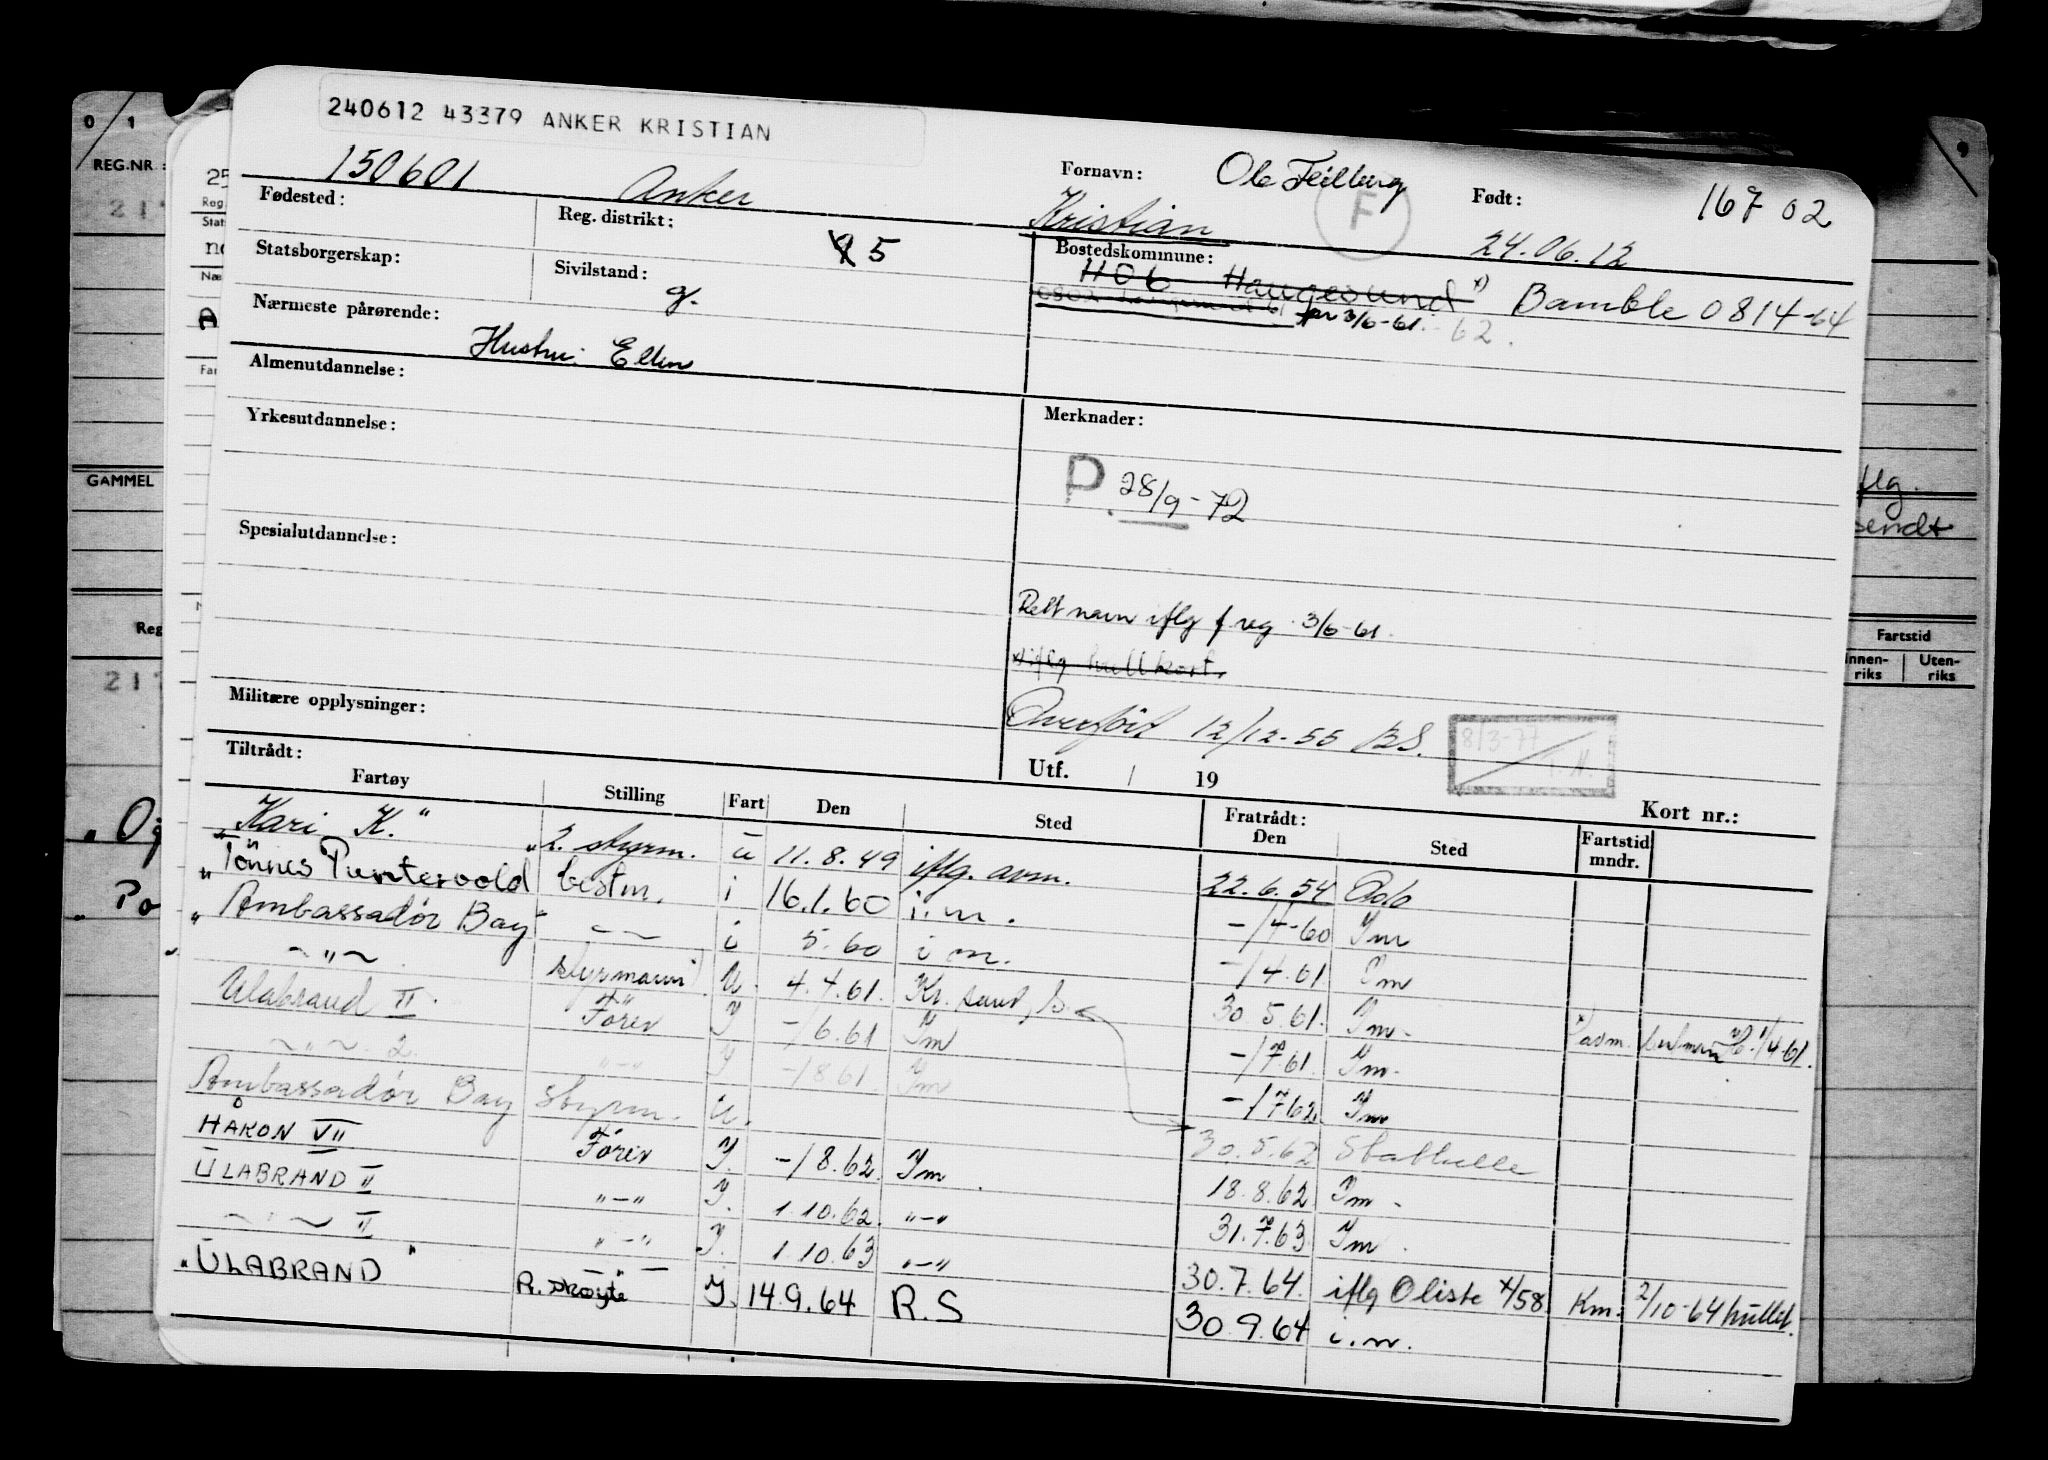 240612 43379 ANKER KRISTIAN
150601 Anker Fornavn: Ole Feilberg Kristian F Født: 24.06.12 167 02
Fødested: Reg. distrikt: 5 Bostedskommune:
1106 Haugesund x) Bamble 0814-64
3/6-61 62.
Statsborgerskap: Sivilstand: g.
Nærmeste pårørende: Hustru: Ellen
Almenutdannelse:
Yrkesutdannelse: Merknader:
P. 28/9-72
Spesialutdannelse:
Rett navn iflg f reg. 3/6-61.
x) iflg hullkort.
Militære opplysninger: Overført 12/12-55 BS. 8/3-77 T.H.
Tiltrådt: Utf. / 19 Kort nr.:
Fartøy Stilling Fart Den Sted Fratrådt: Den Sted Fartstid mndr.
"Kari K." 2. styrm. u 11.8.49 iflg. avm. 22.6.54 Oslo
"Tönnes Puntervold" bestm. i 16.1.60 i.m. -/4-60 Im
"Ambassadør Bay" -〃- i 5.60 i m. -/4.61 Im
-〃- styrmann U. 4.4.61. Kr. sand, S. 30.5.61. Im.
Ulabrand II. Fører Y -/6.61 Im -/7.61. Im.
-〃- 2. -〃- Y -/8.61. Im -/7.62. Im
Ambassadør Bay Styrm. U. 30.5.62 Stathelle
HÅKON VII Fører Y. -/8.62. Im. 18.8.62 Im.
ULABRAND II -〃- Y. 1.10.62. -〃- 31.7.63 Im.
-〃- II -〃- Y. 1.10.63 -〃- 30.7.64. iflg O liste x/58 Km. 2/10-64 hullet.
"ULABRAND" R. skøyte Y. 14.9.64 R.S 30.9.64 i.m.
0/1
REG.NR.:
GAMMEL
Reg
217
9
flg.
sendt
Fartstid
Innenriks Utenriks